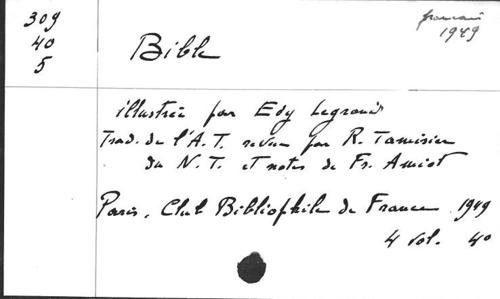 309
40
5
français
1949
Bible
illustrée par Edy Legrand
Trad. de l'A. T. revue par R. Tamisier
du N. T. et notes de Fr. Amiot
Paris, Club Bibliophile de France 1949
4 vol. 40